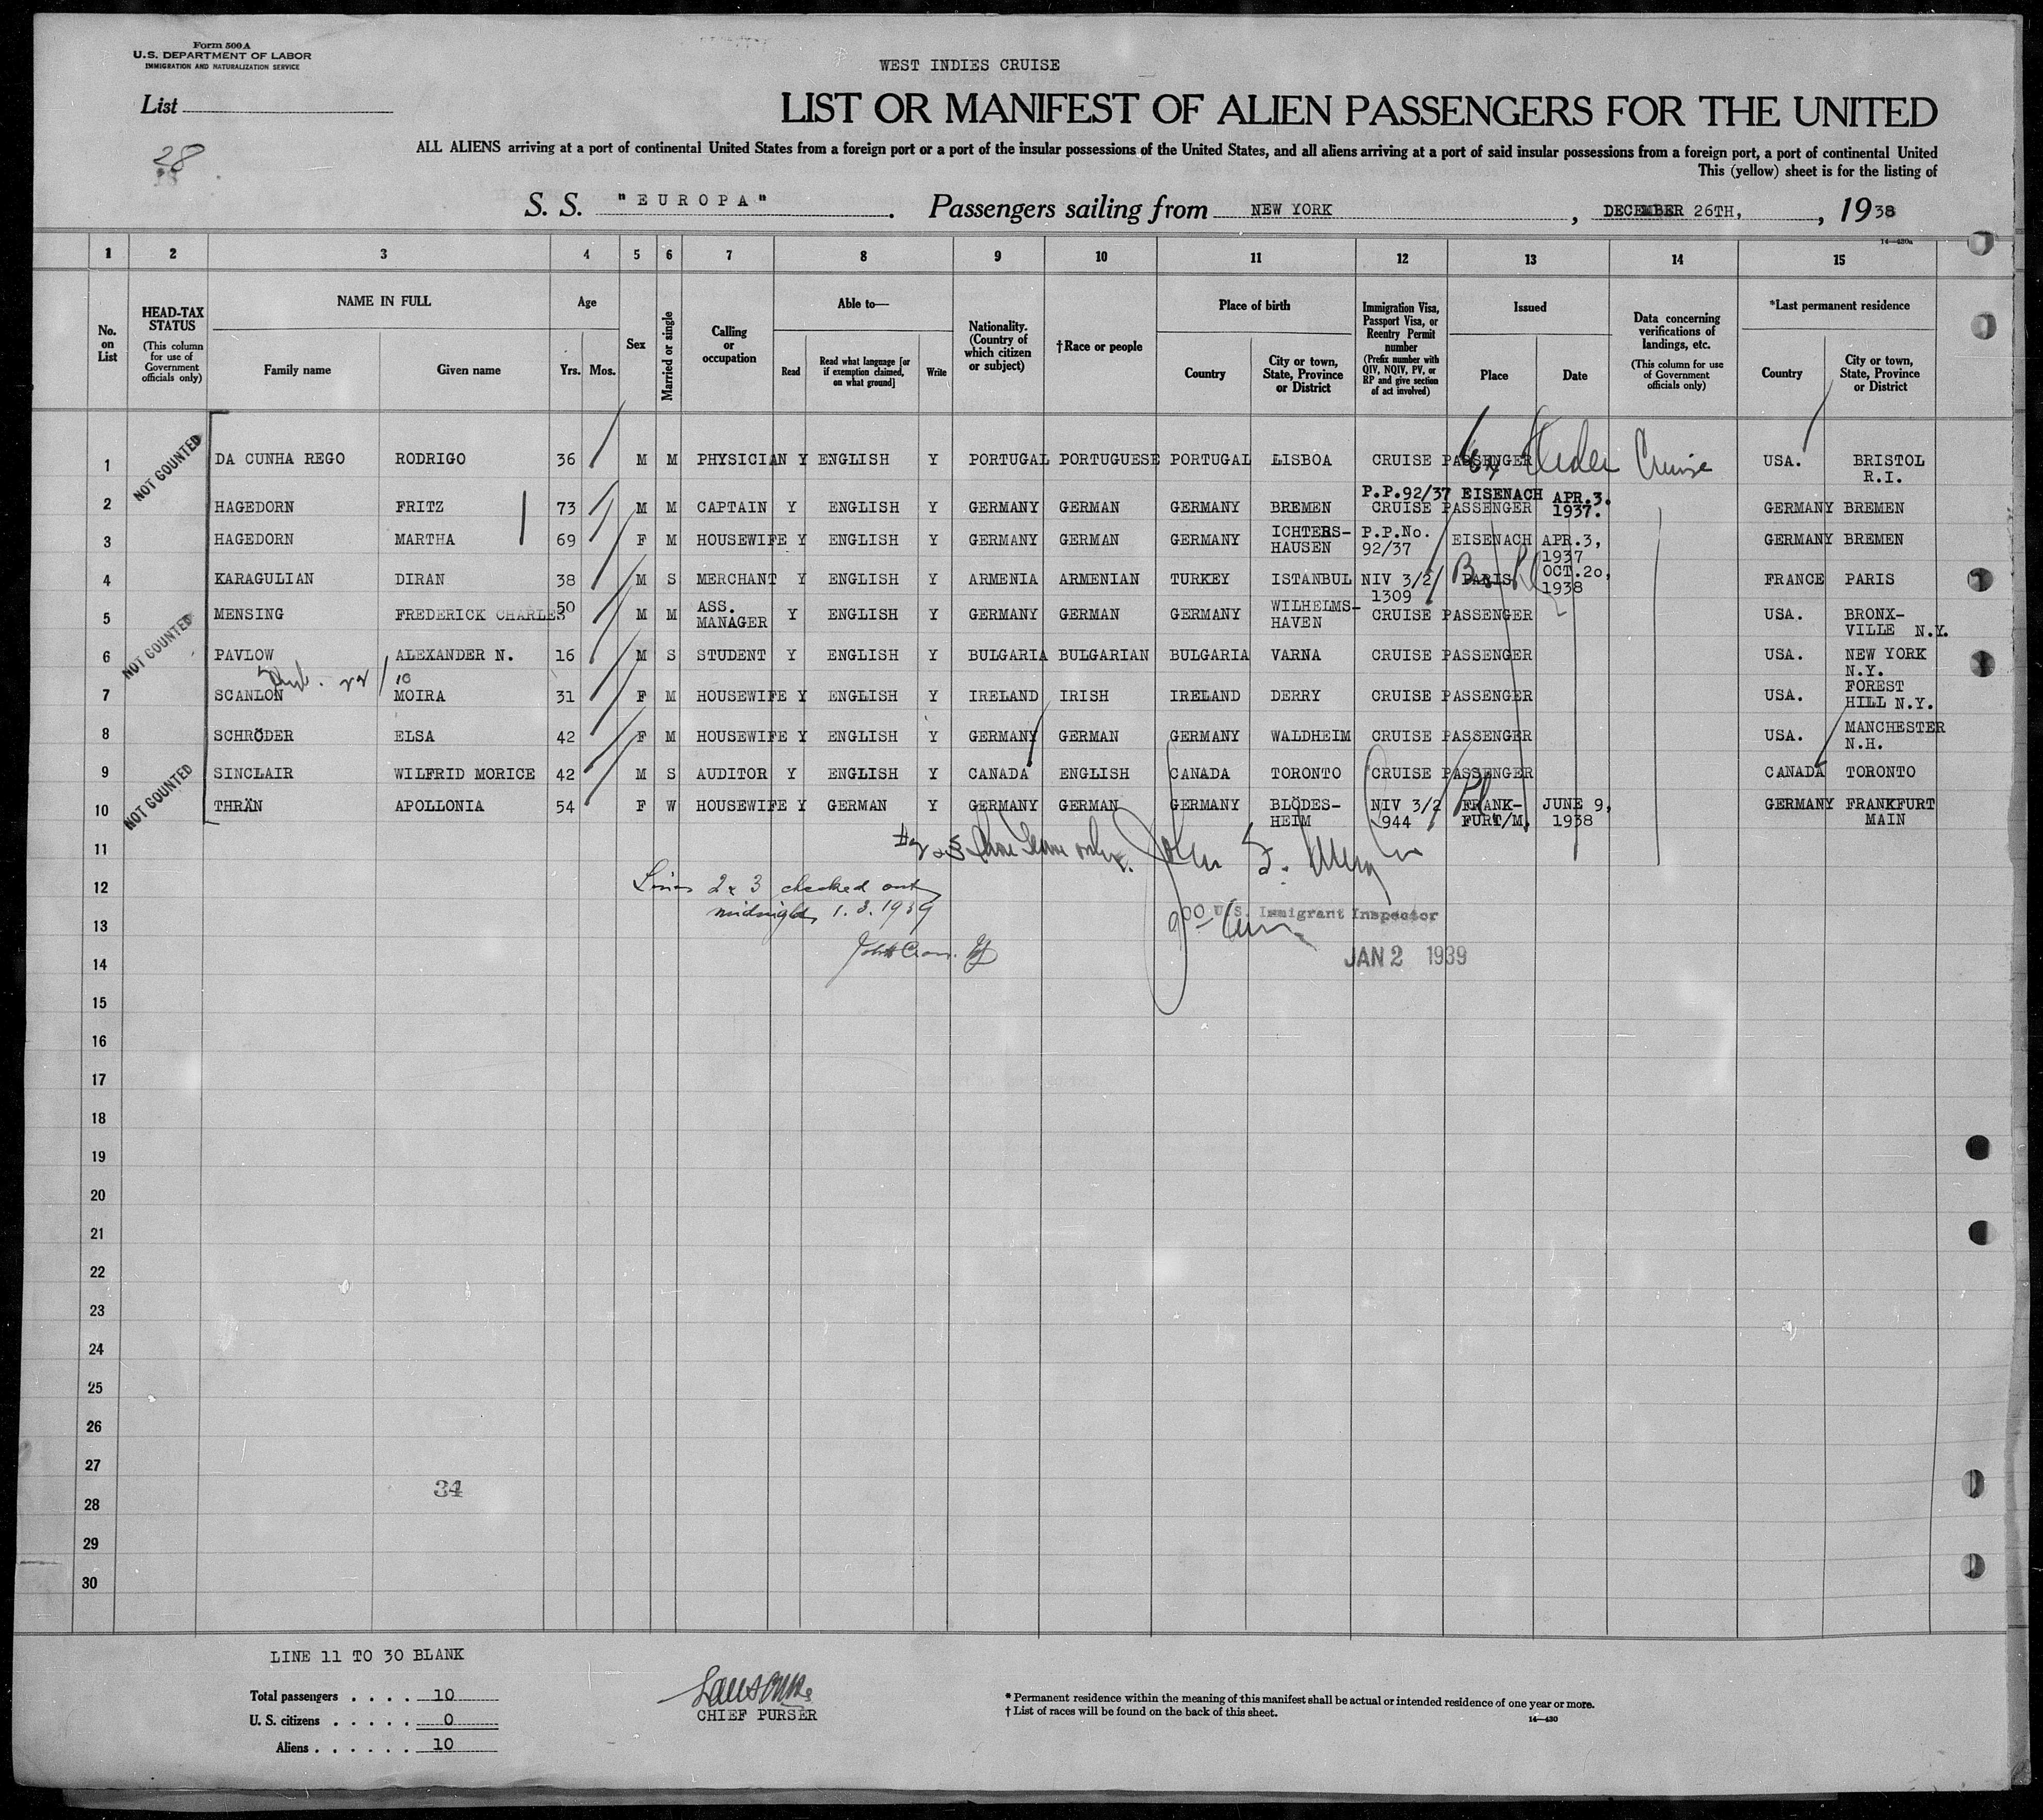 Form 500 A
U. S. DEPARTMENT OF LABOR
IMMIGRATION AND NATURALIZATION SERVICE
WEST INDIES CRUISE
List
28
LIST OR MANIFEST OF ALIEN PASSENGERS FOR THE UNITED
ALL ALIENS arriving at a port of continental United States from a foreign port or a port of the insular possessions of the United States, and all aliens arriving at a port of said insular possessions from a foreign port, a port of continental United
This (yellow) sheet is for the listing of
S. S. "EUROPA". Passengers sailing from NEW YORK, DECEMBER 26TH, , 1938
14—430a
1 2 3 4 5 6 7 8 9 10 11 12 13 14 15
No. on List
HEAD-TAX STATUS (This column for use of Government officials only)
NAME IN FULL
Family name Given name
Age
Yrs. Mos.
Sex
Married or single
Calling or occupation
Able to—
Read
Read what language [or if exemption claimed, on what ground]
Write
Nationality. (Country of which citizen or subject)
†Race or people
Place of birth
Country
City or town, State, Province or District
Immigration Visa, Passport Visa, or Reentry Permit number (Prefix number with QIV, NQIV, PV, or RP and give section of act involved)
Issued
Place Date
Data concerning verifications of landings, etc. (This column for use of Government officials only)
*Last permanent residence
Country
City or town, State, Province or District
NOT COUNTED
1 DA CUNHA REGO RODRIGO 36 M M PHYSICIAN Y ENGLISH Y PORTUGAL PORTUGUESE PORTUGAL LISBOA CRUISE PASSENGER Cruise USA. BRISTOL R.I.
2 HAGEDORN FRITZ 73 M M CAPTAIN Y ENGLISH Y GERMANY GERMAN GERMANY BREMEN P.P.92/37 EISENACH APR.3. 1937. CRUISE PASSENGER GERMANY BREMEN
3 HAGEDORN MARTHA 69 F M HOUSEWIFE Y ENGLISH Y GERMANY GERMAN GERMANY ICHTERS-HAUSEN P.P.No. 92/37 EISENACH APR.3, 1937 GERMANY BREMEN
4 KARAGULIAN DIRAN 38 M S MERCHANT Y ENGLISH Y ARMENIA ARMENIAN TURKEY ISTANBUL NIV 3/2/ 1309 PARIS OCT.20, 1938 FRANCE PARIS
5 MENSING FREDERICK CHARLES 50 M M ASS. MANAGER Y ENGLISH Y GERMANY GERMAN GERMANY WILHELMS-HAVEN CRUISE PASSENGER USA. BRONX-VILLE N.Y.
NOT COUNTED
6 PAVLOW ALEXANDER N. 16 M S STUDENT Y ENGLISH Y BULGARIA BULGARIAN BULGARIA VARNA CRUISE PASSENGER USA. NEW YORK N.Y.
10
7 SCANLON MOIRA 31 F M HOUSEWIFE Y ENGLISH Y IRELAND IRISH IRELAND DERRY CRUISE PASSENGER USA. FOREST HILL N.Y.
8 SCHRÖDER ELSA 42 F M HOUSEWIFE Y ENGLISH Y GERMANY GERMAN GERMANY WALDHEIM CRUISE PASSENGER USA. MANCHESTER N.H.
9 SINCLAIR WILFRID MORICE 42 M S AUDITOR Y ENGLISH Y CANADA ENGLISH CANADA TORONTO CRUISE PASSENGER CANADA TORONTO
NOT COUNTED
10 THRÄN APOLLONIA 54 F W HOUSEWIFE Y GERMAN Y GERMANY GERMAN GERMANY BLÖDES-HEIM NIV 3/2 944 FRANK-FURT/M. JUNE 9, 1938 GERMANY FRANKFURT MAIN
11
12 Lines 2 & 3 checked out
midnight 1.3.1939
13 U.S. Immigrant Inspector
14 JAN 2 1939
15
16
17
18
19
20
21
22
23
24
25
26
27
34
28
29
30
LINE 11 TO 30 BLANK
Total passengers . . . . 10
U. S. citizens . . . . . 0
Aliens . . . . . . 10
CHIEF PURSER
* Permanent residence within the meaning of this manifest shall be actual or intended residence of one year or more.
† List of races will be found on the back of this sheet.
14—430